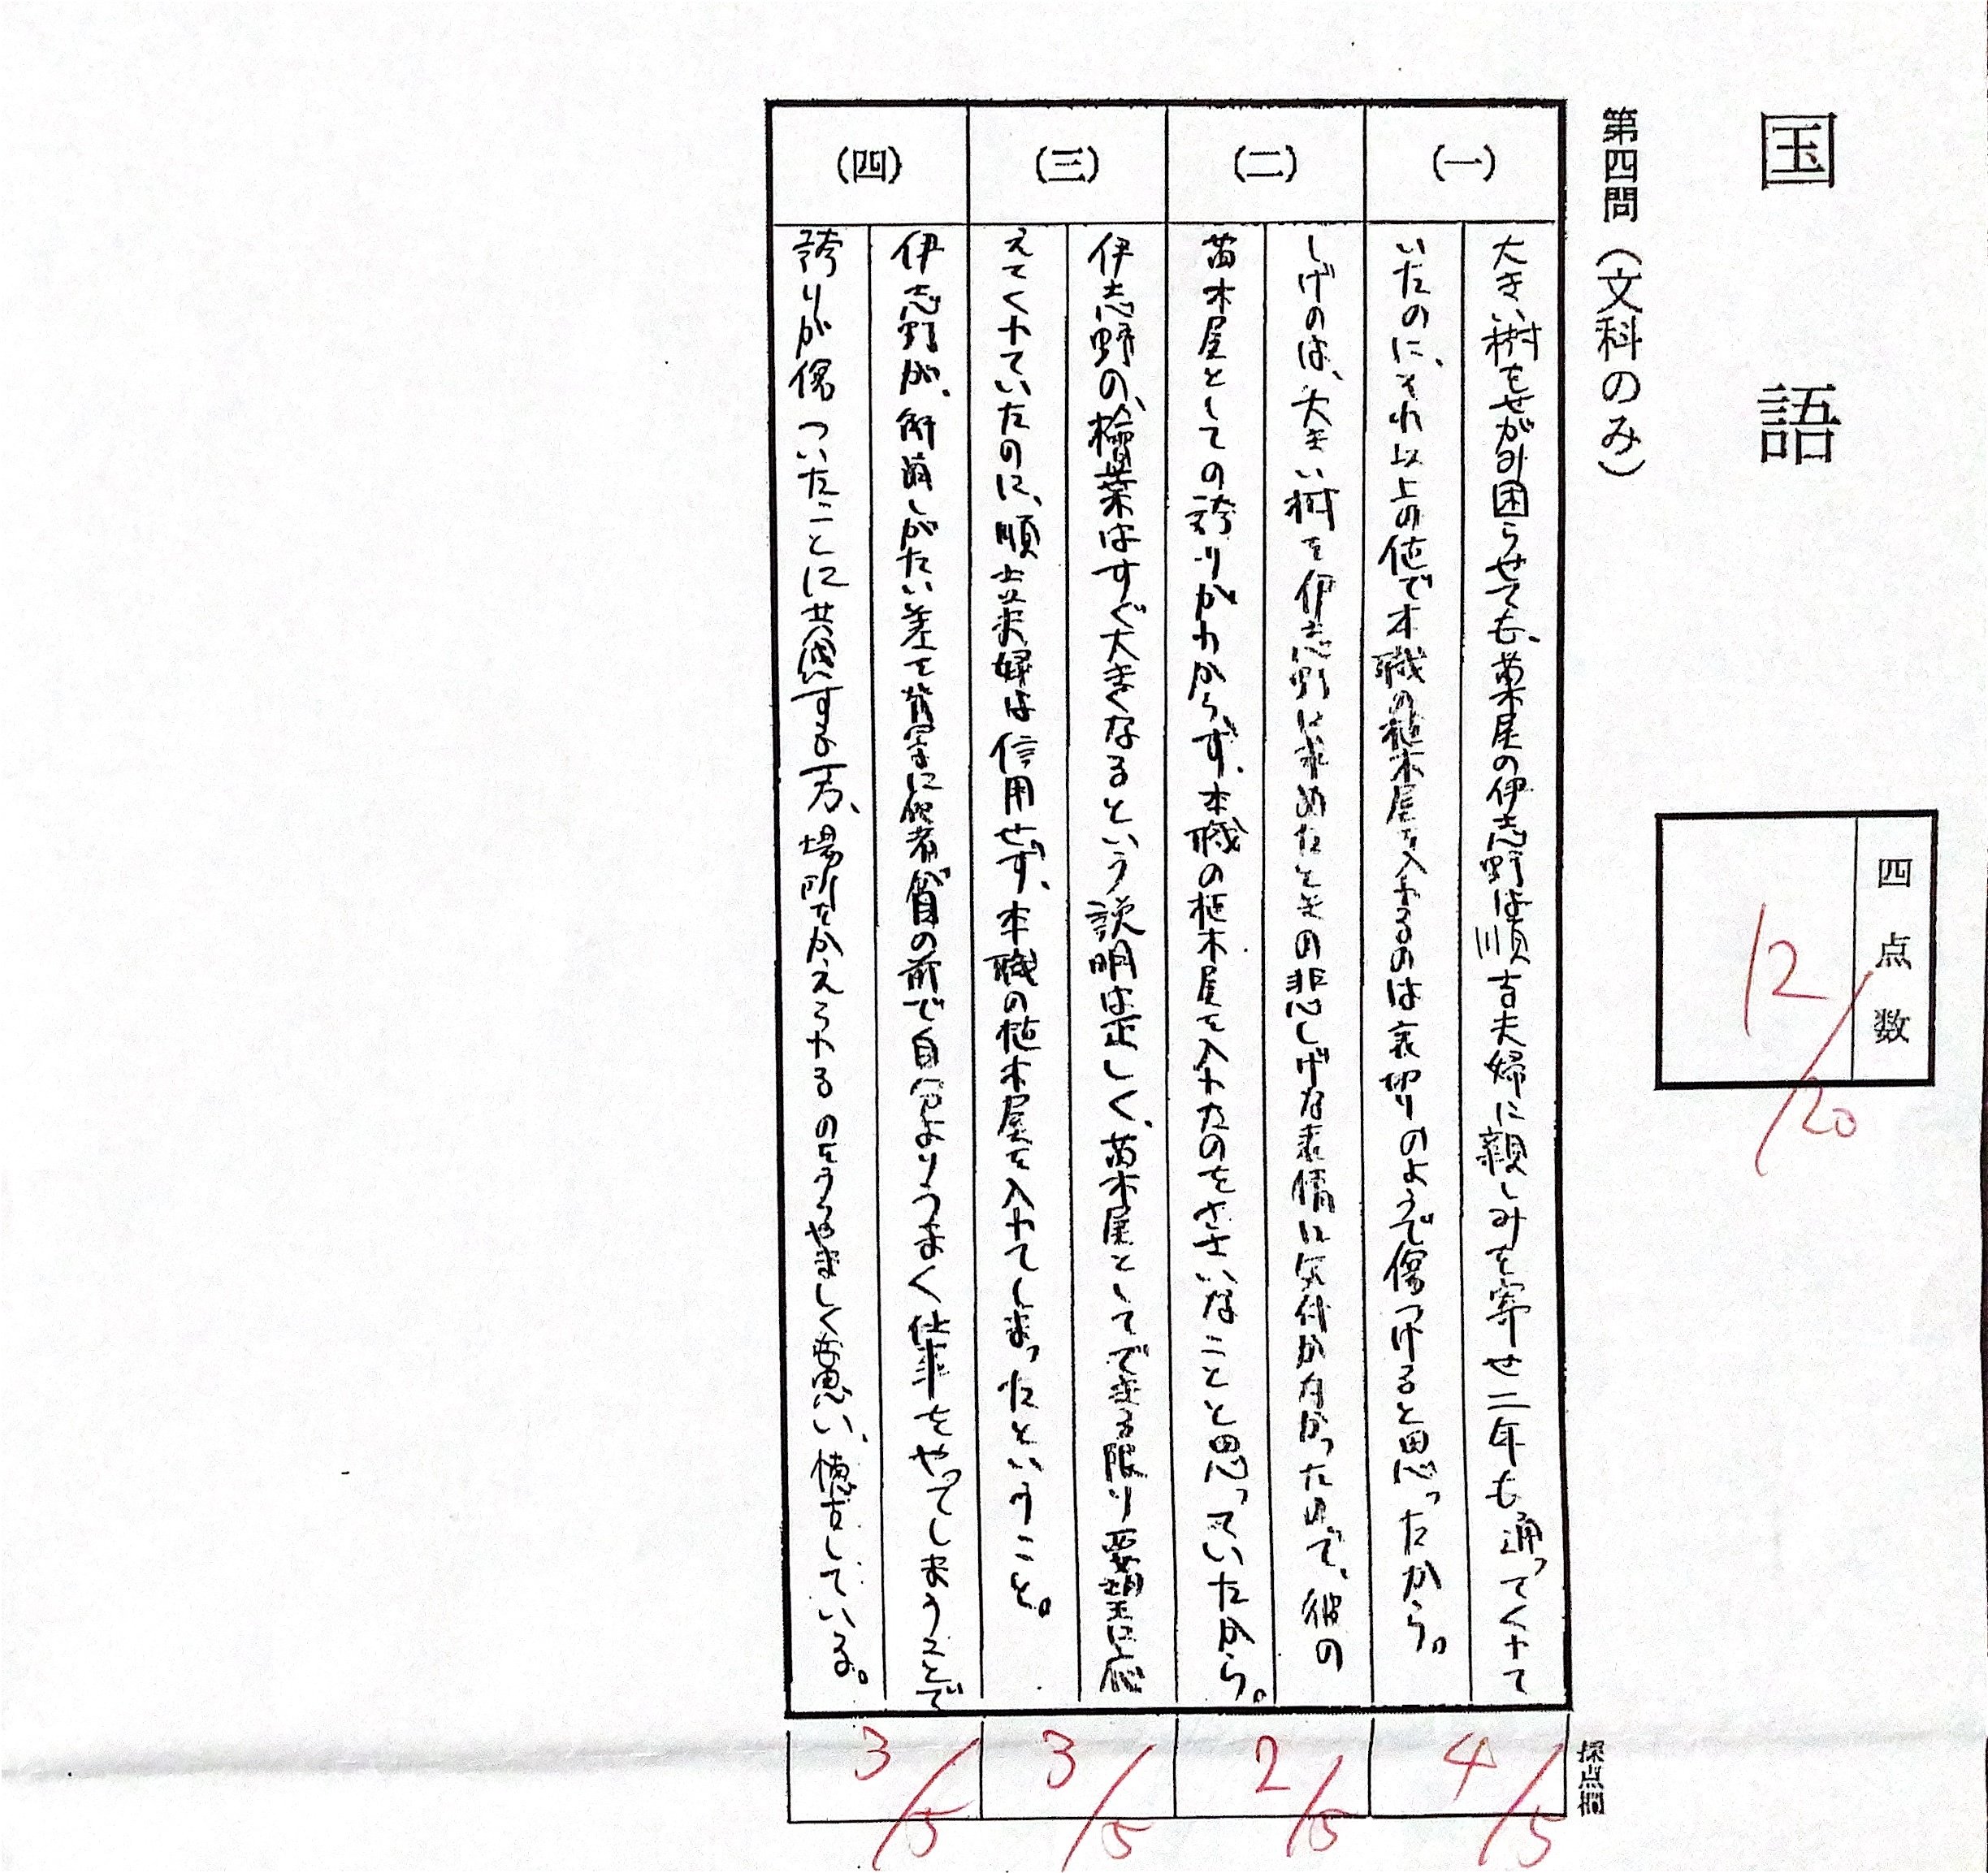 国語
第四問（文科のみ）
四点数
12/20
(一)
大きい樹をせがみ困らせても、苗木屋の伊志野は順吉夫婦に親しみを寄せ二年も通ってくれて
いたのに、それ以上の値で本職の植木屋を入れるのは裏切りのようで傷つけると思ったから。
(二)
しげのは、大きい樹を伊志野に求めたときの悲しげな表情に気付かなかったので、彼の
苗木屋としての誇りがわからず、本職の植木屋を入れたのをささいなことと思っていたから。
(三)
伊志野の、檜葉はすぐ大きくなるという説明は正しく、苗木屋としてできる限り要望に応
えてくれていたのに、順吉夫婦は信用せず、本職の植木屋を入れてしまったということ。
(四)
伊志野が、解消しがたい差を背景に後者が自分の前で自分よりうまく仕事をやってしまうことで
誇りが傷ついたことに共感する一方、場所をかえられるのをうらやましく思い、している。
採点欄
4/5
2/5
3/5
3/5